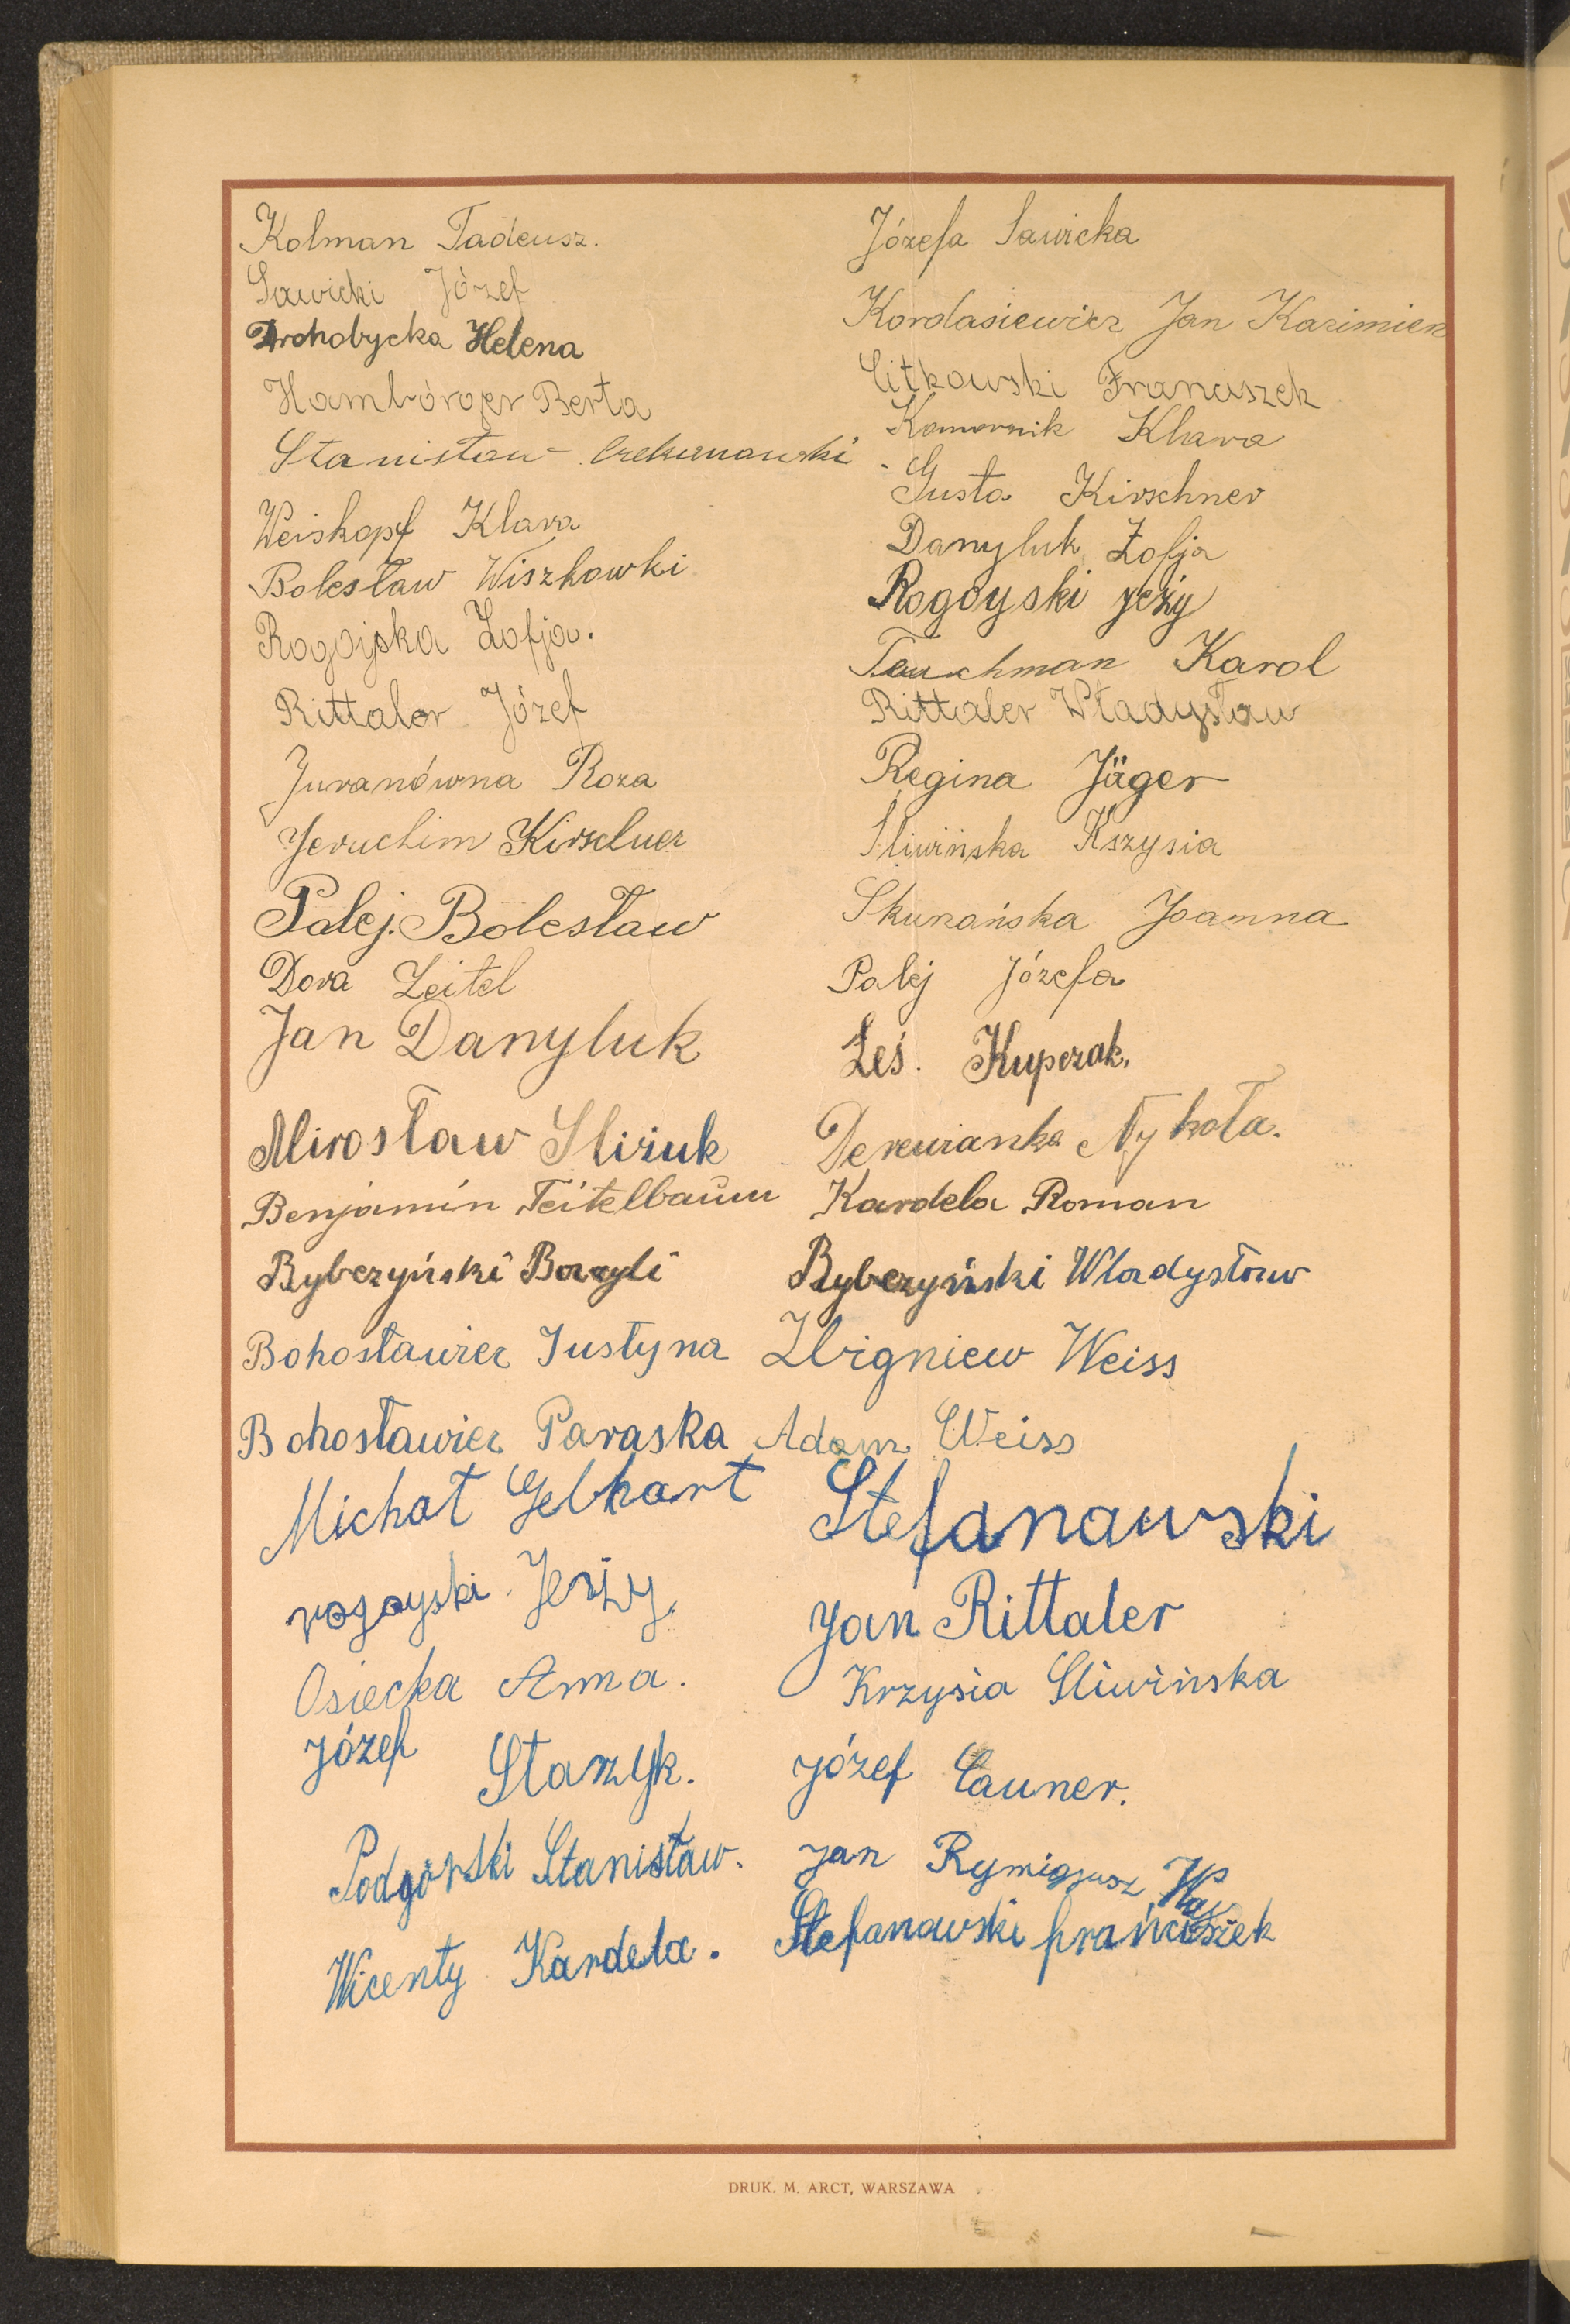 Kolman Tadeusz.
Sawicki Józef
Drohobycka Helena
Hambórger Berta
Stanisław Czekanowski
Weiskopf Klara
Bolesław Wiszkowki
Rogojska Zofja.
Rittaler Józef
Juranówna Roza
Jeruchim Kirschner
Palej. Bolesław
Dora Zeitel
Jan Danyluk
Mirosław Sliżuk
Benjamin Teitelbaum
Rybczyński Bazyli
Bohosławiec Justyna
Bohosławiec Paraska
Michał Gebhart
rogoyski Jerzy.
Osiecka Anna.
Józef Starzyk.
Podgórski Stanisław.
Wicenty Kardela.
Józefa Sawicka
Kordasiewicz Jan Kazimierz
Litkowski Franciszek
Komornik Klara
Gusta Kirschner
Danyluk Zofja
Rogoyski jeży
Teuchman Karol
Rittaler Władysław
Regina Jäger
Sliwińska Kszysia
Joanna
Palej Józefa
Łeś. Kupczak.
Derewianka Nykoła.
Kardela Roman
Rybczyński Wladysław
Zbigniew Weiss
Adam Weiss
Stefanawski
Jan Rittaler
Krzysia Sliwińska
Józef Launer.
Jan Rymigjusz
Stefanawski frańciszek
DRUK. M. ARCT, WARSZAWA